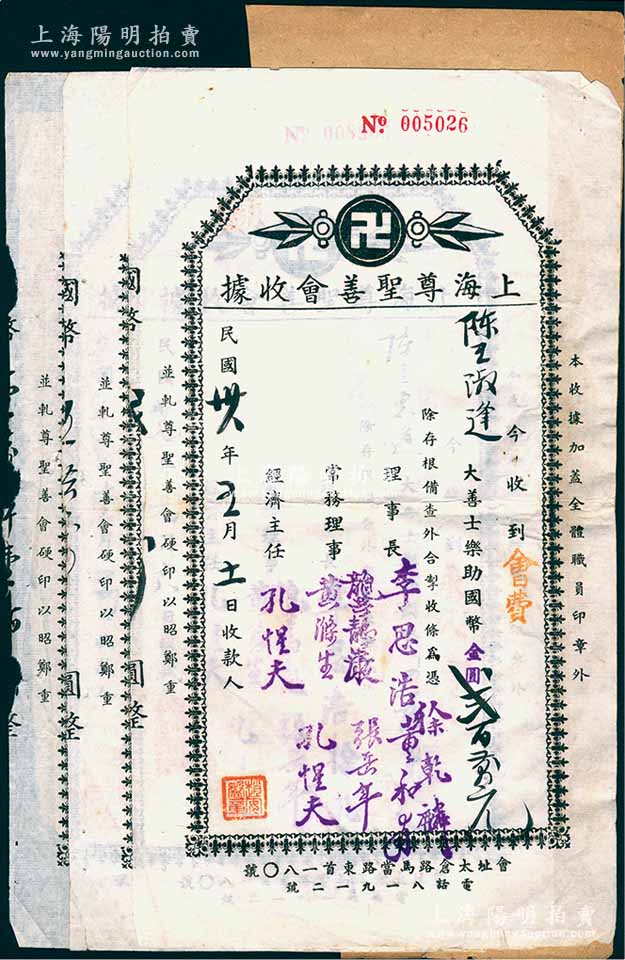 上海陽明拍賣
www.yangmingauction.com
Nº 005026
上海尊聖善會收據
本收據加蓋全體職員印章外
陈王淑逢 今收到 會費
大善士樂助國幣 金圓 弍百萬元
除存根備查外合掣收條為憑
理事長 李思浩 黃和
徐乾麟
常務理事
黃滌生 張岳年
經濟主任 孔惺夫 孔惺夫
民國卅年五月十一日收款人
會址太倉路馬當路東首一八〇號
電話八一九一二號
國幣 圓整
並軋尊聖善會硬印以昭鄭重
國幣 圓整
並軋尊聖善會硬印以昭鄭重
幣 整
上海陽明拍賣
www.yangmingauction.com